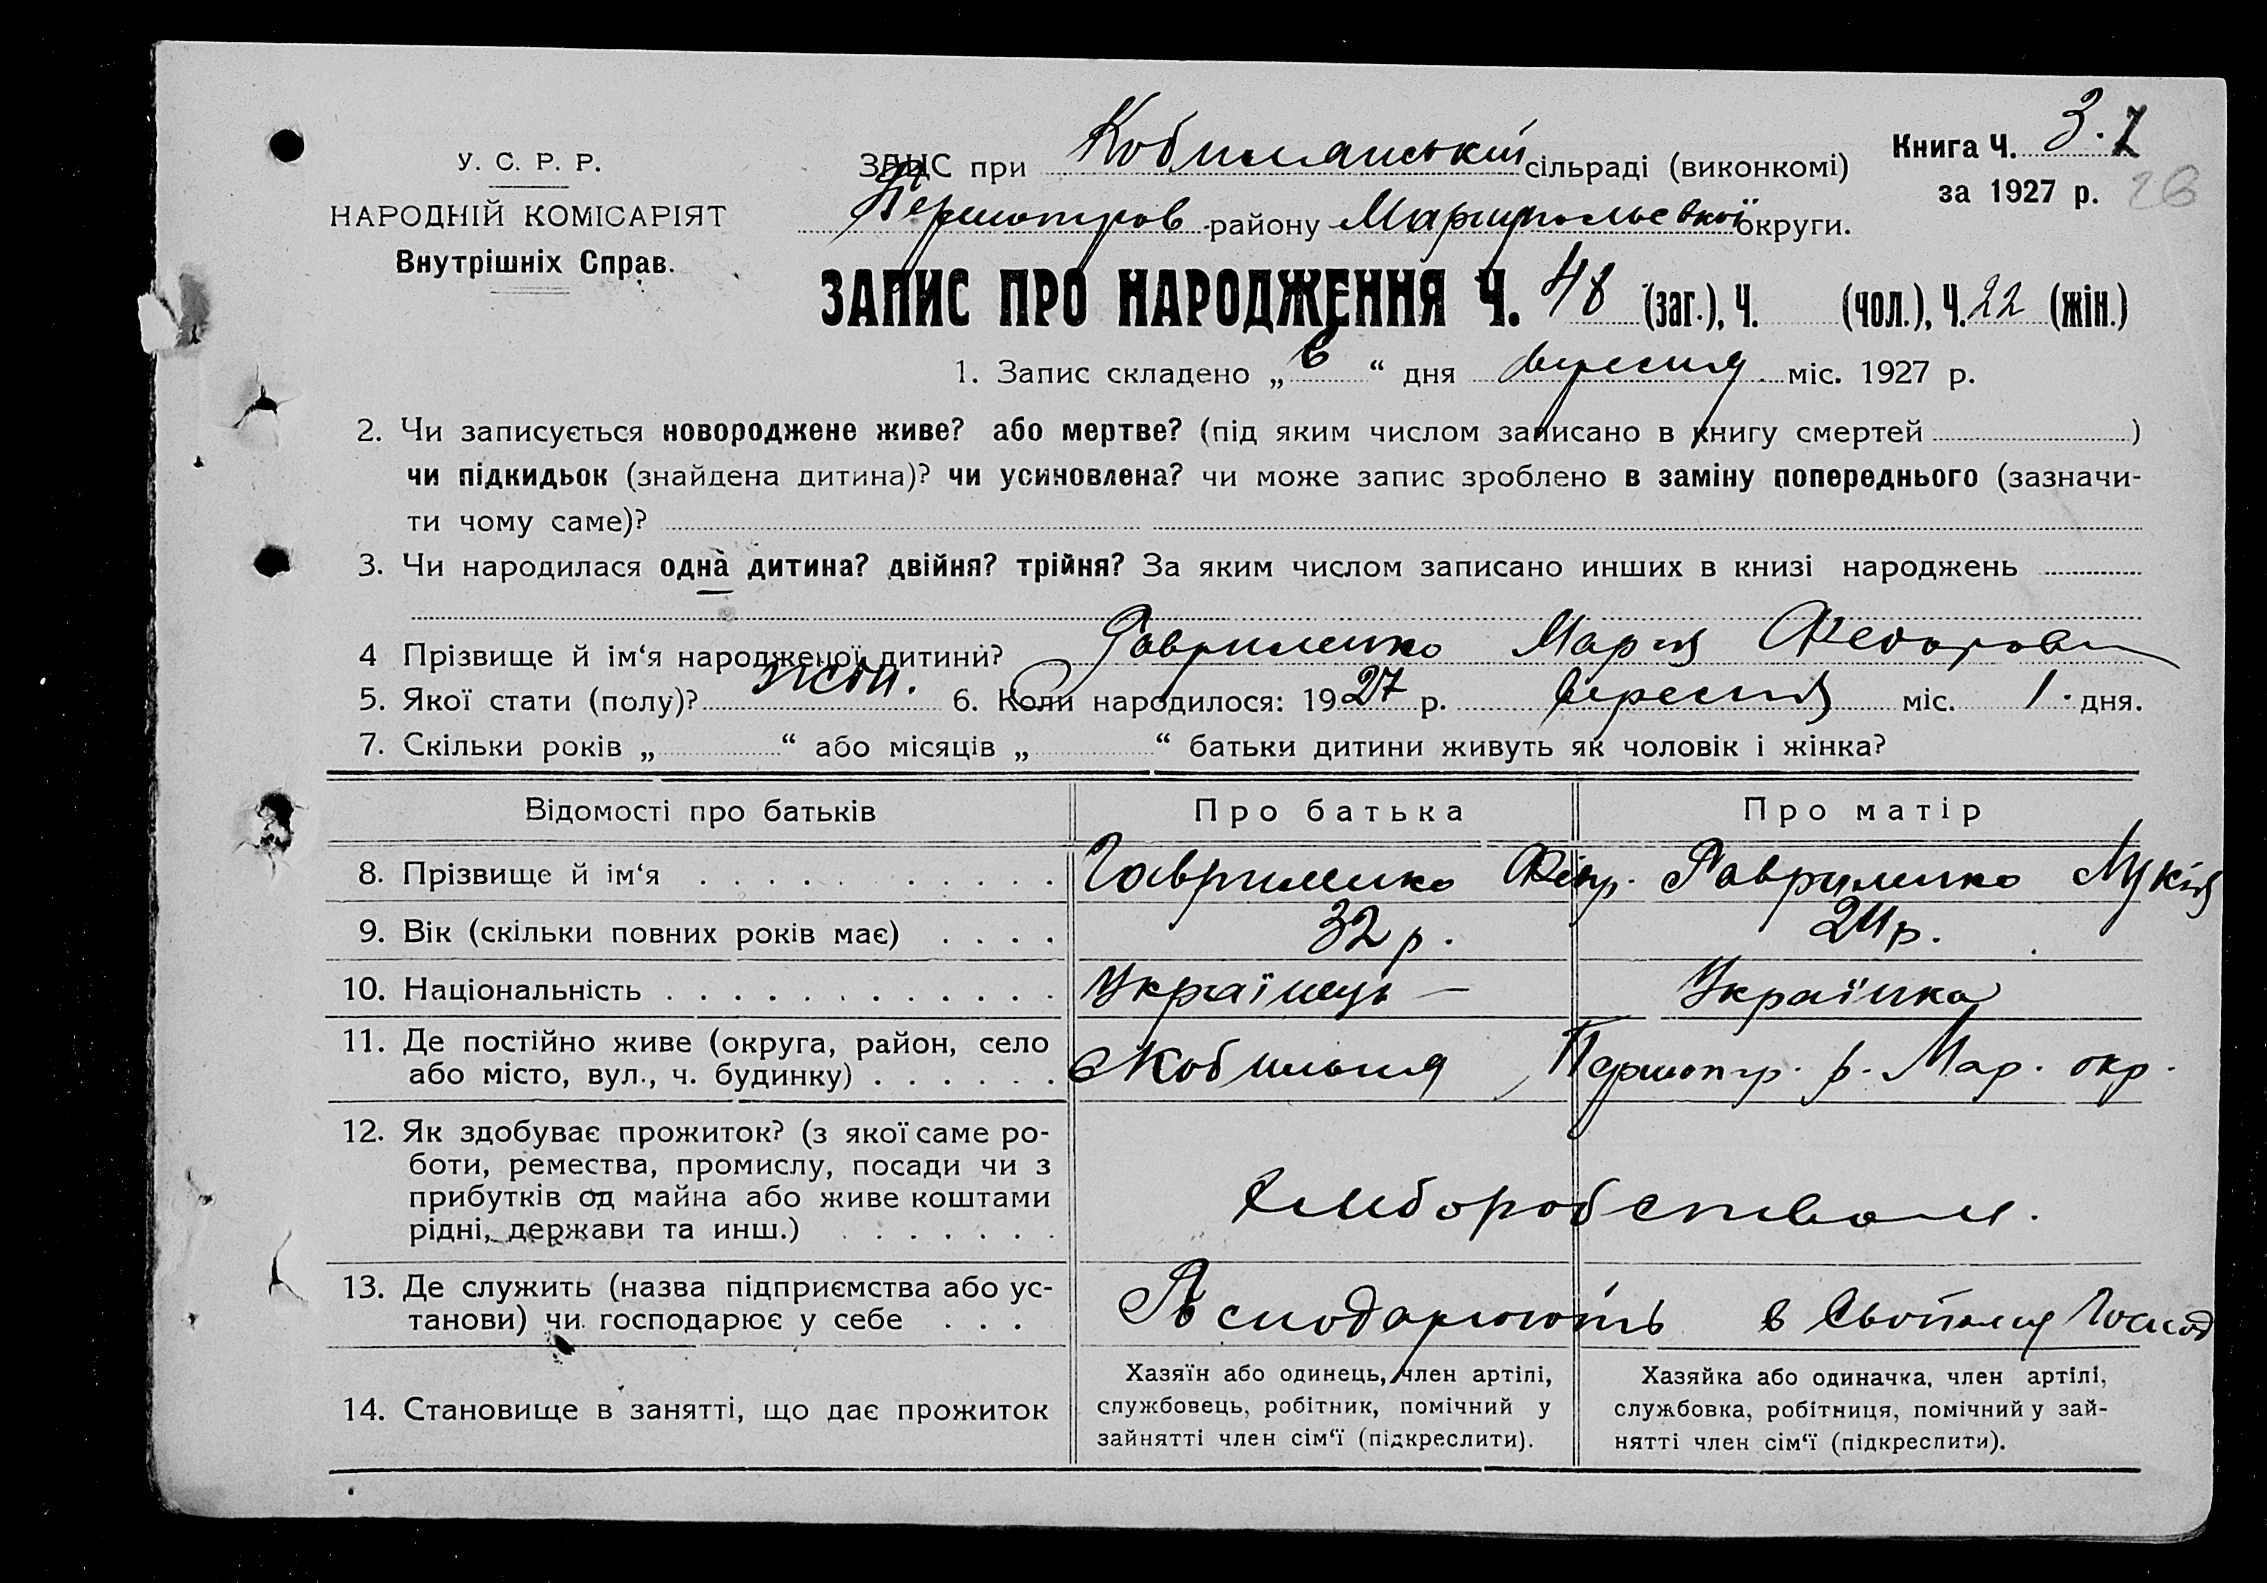 У. С. Р. Р.
НАРОДНІЙ КОМІСАРІЯТ
Внутрішніх Справ.
ЗАЦС при Кобилянській сільраді (виконкомі)
Першотров району Маріупольської округи.
Книга Ч. 3.
за 1927 р. 26
ЗАПИС ПРО НАРОДЖЕННЯ Ч. 48 (заг.), Ч. (чол.), Ч. 22 (жін.)
1. Запис складено „ 6 “ дня вересня міс. 1927 р.
2. Чи записується новороджене живе? або мертве? (під яким числом записано в книгу смертей )
чи підкидьок (знайдена дитина)? чи усиновлена? чи може запис зроблено в заміну попереднього (зазначи-
ти чому саме)?
3. Чи народилася одна дитина? двійня? трійня? За яким числом записано инших в книзі народжень
4 Прізвище й ім‘я народженої дитини? Гавриленко Мария Федоровн
5. Якої стати (полу)? жон. 6. Коли народилося: 1927 р. вересня міс. 1 дня.
7. Скільки років „ “ або місяців „ “ батьки дитини живуть як чоловік і жінка?
Відомості про батьків Про батька Про матір
8. Прізвище й ім‘я Гавриленко Гавриленко Лукія
9. Вік (скільки повних років має) 32 р. 24 р.
10. Національність Українець — Українка
11. Де постійно живе (округа, район, село
або місто, вул., ч. будинку) Кобильня Першотр. р. Мар. окр.
12. Як здобуває прожиток? (з якої саме ро-
боти, ремества, промислу, посади чи з
прибутків од майна або живе коштами
рідні, держави та инш.) Хліборобством.
13. Де служить (назва підприємства або ус-
танови) чи господарює у себе Господарюють в Господ
14. Становище в занятті, що дає прожиток
Хазяїн або одинець, член артілі,
службовець, робітник, помічний у
зайнятті член сім‘ї (підкреслити).
Хазяйка або одиначка, член артілі,
службовка, робітниця, помічний у зай-
нятті член сім‘ї (підкреслити).